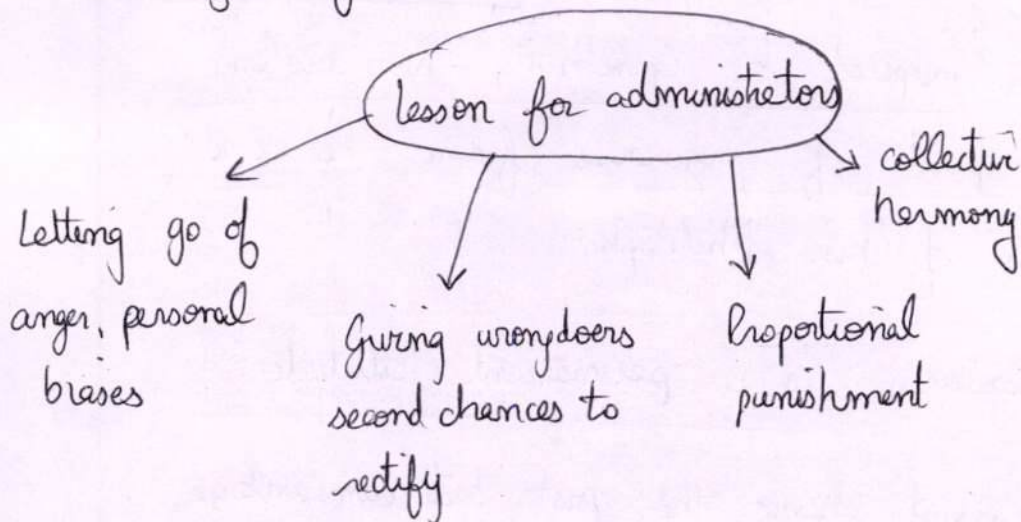 lesson for administrators
Letting go of
anger, personal
biases
Giving wrongdoers
second chances to
rectify
Proportional
punishment
collective
harmony